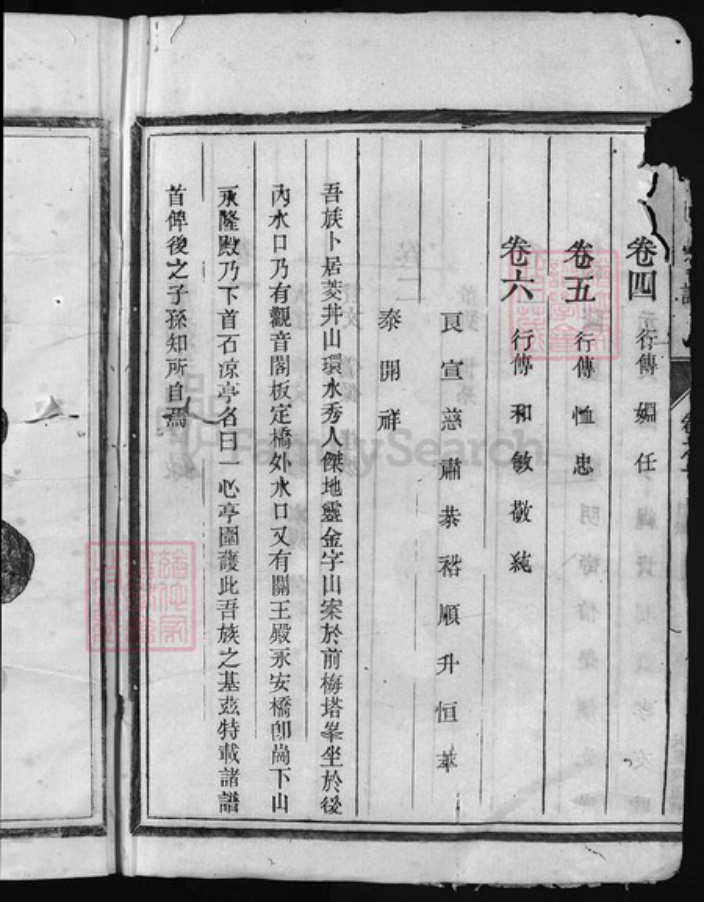 卷四 行傳 婣 任
卷五 行傳 恤 忠
卷六 行傳 和 敏 敬 純
良 宣 慈 肅 恭 裕 順 升 恒 萃
泰 開 祥
吾族卜居菱井山環水秀人傑地靈金字山案於前梅塔峯坐於後
內水口乃有觀音閣板定橋外水口又有關王殿永安橋卽崗下山
永隆殿乃下首石凉亭名曰一心亭圍護此吾族之基茲特載諸譜
首俾後之子孫知所自焉
FamilySearch